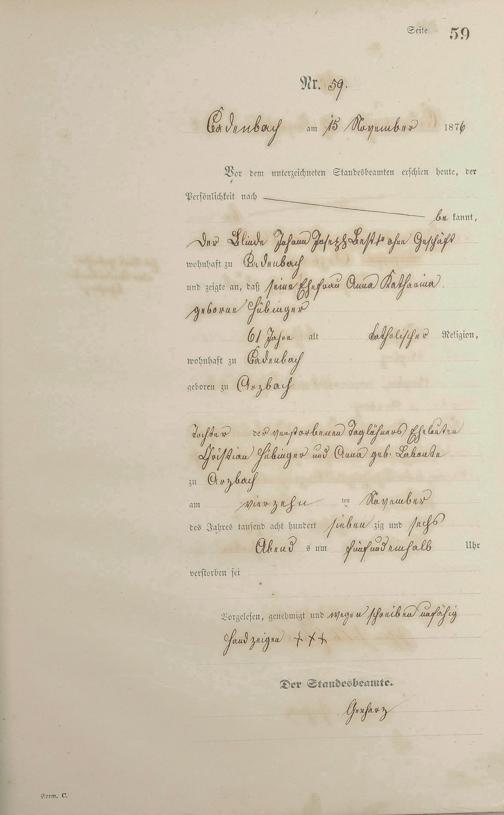 Seite 59
Nr. 59.
Cadenbach am 15 November 1876
Vor dem unterzeichneten Standesbeamten erschien heute, der
Persönlichkeit nach
be kannt,
der Blinde Johann Joseph ohne Geschäft
wohnhaft zu Cadenbach
und zeigte an, daß seine Ehefrau Anna Katharina
geborne Hübinger
61 Jahre alt katholischer Religion,
wohnhaft zu Cadenbach
geboren zu Arzbach
Tochter der verstorbenen Taglöhners Eheleuten
Christian Hübinger und Anna geb.
zu Arzbach
am vierzehn ten November
des Jahres tausend acht hundert sieben zig und sechs
Abend s um fünfundeinhalb Uhr
verstorben sei
Vorgelesen, genehmigt und wegen schreiben unfähig
Handzeigen + + +
Der Standesbeamte.
Gerharz
Form. C.